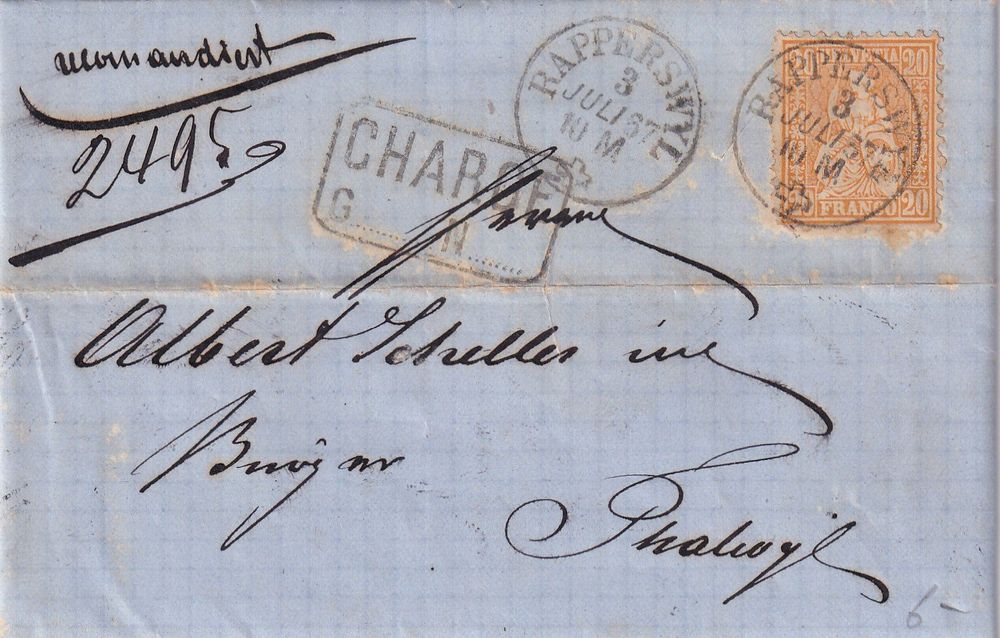 recomandiert
2495
CHARGÉ
G........N........
RAPPERSWYL
3
JULI 67
10 M
20 HELVETIA 20
RAPPERSWYL
3
JULI 67
10 M
20 FRANCO 20
Herrn
Albert Scheller im
Thalwyl
6-